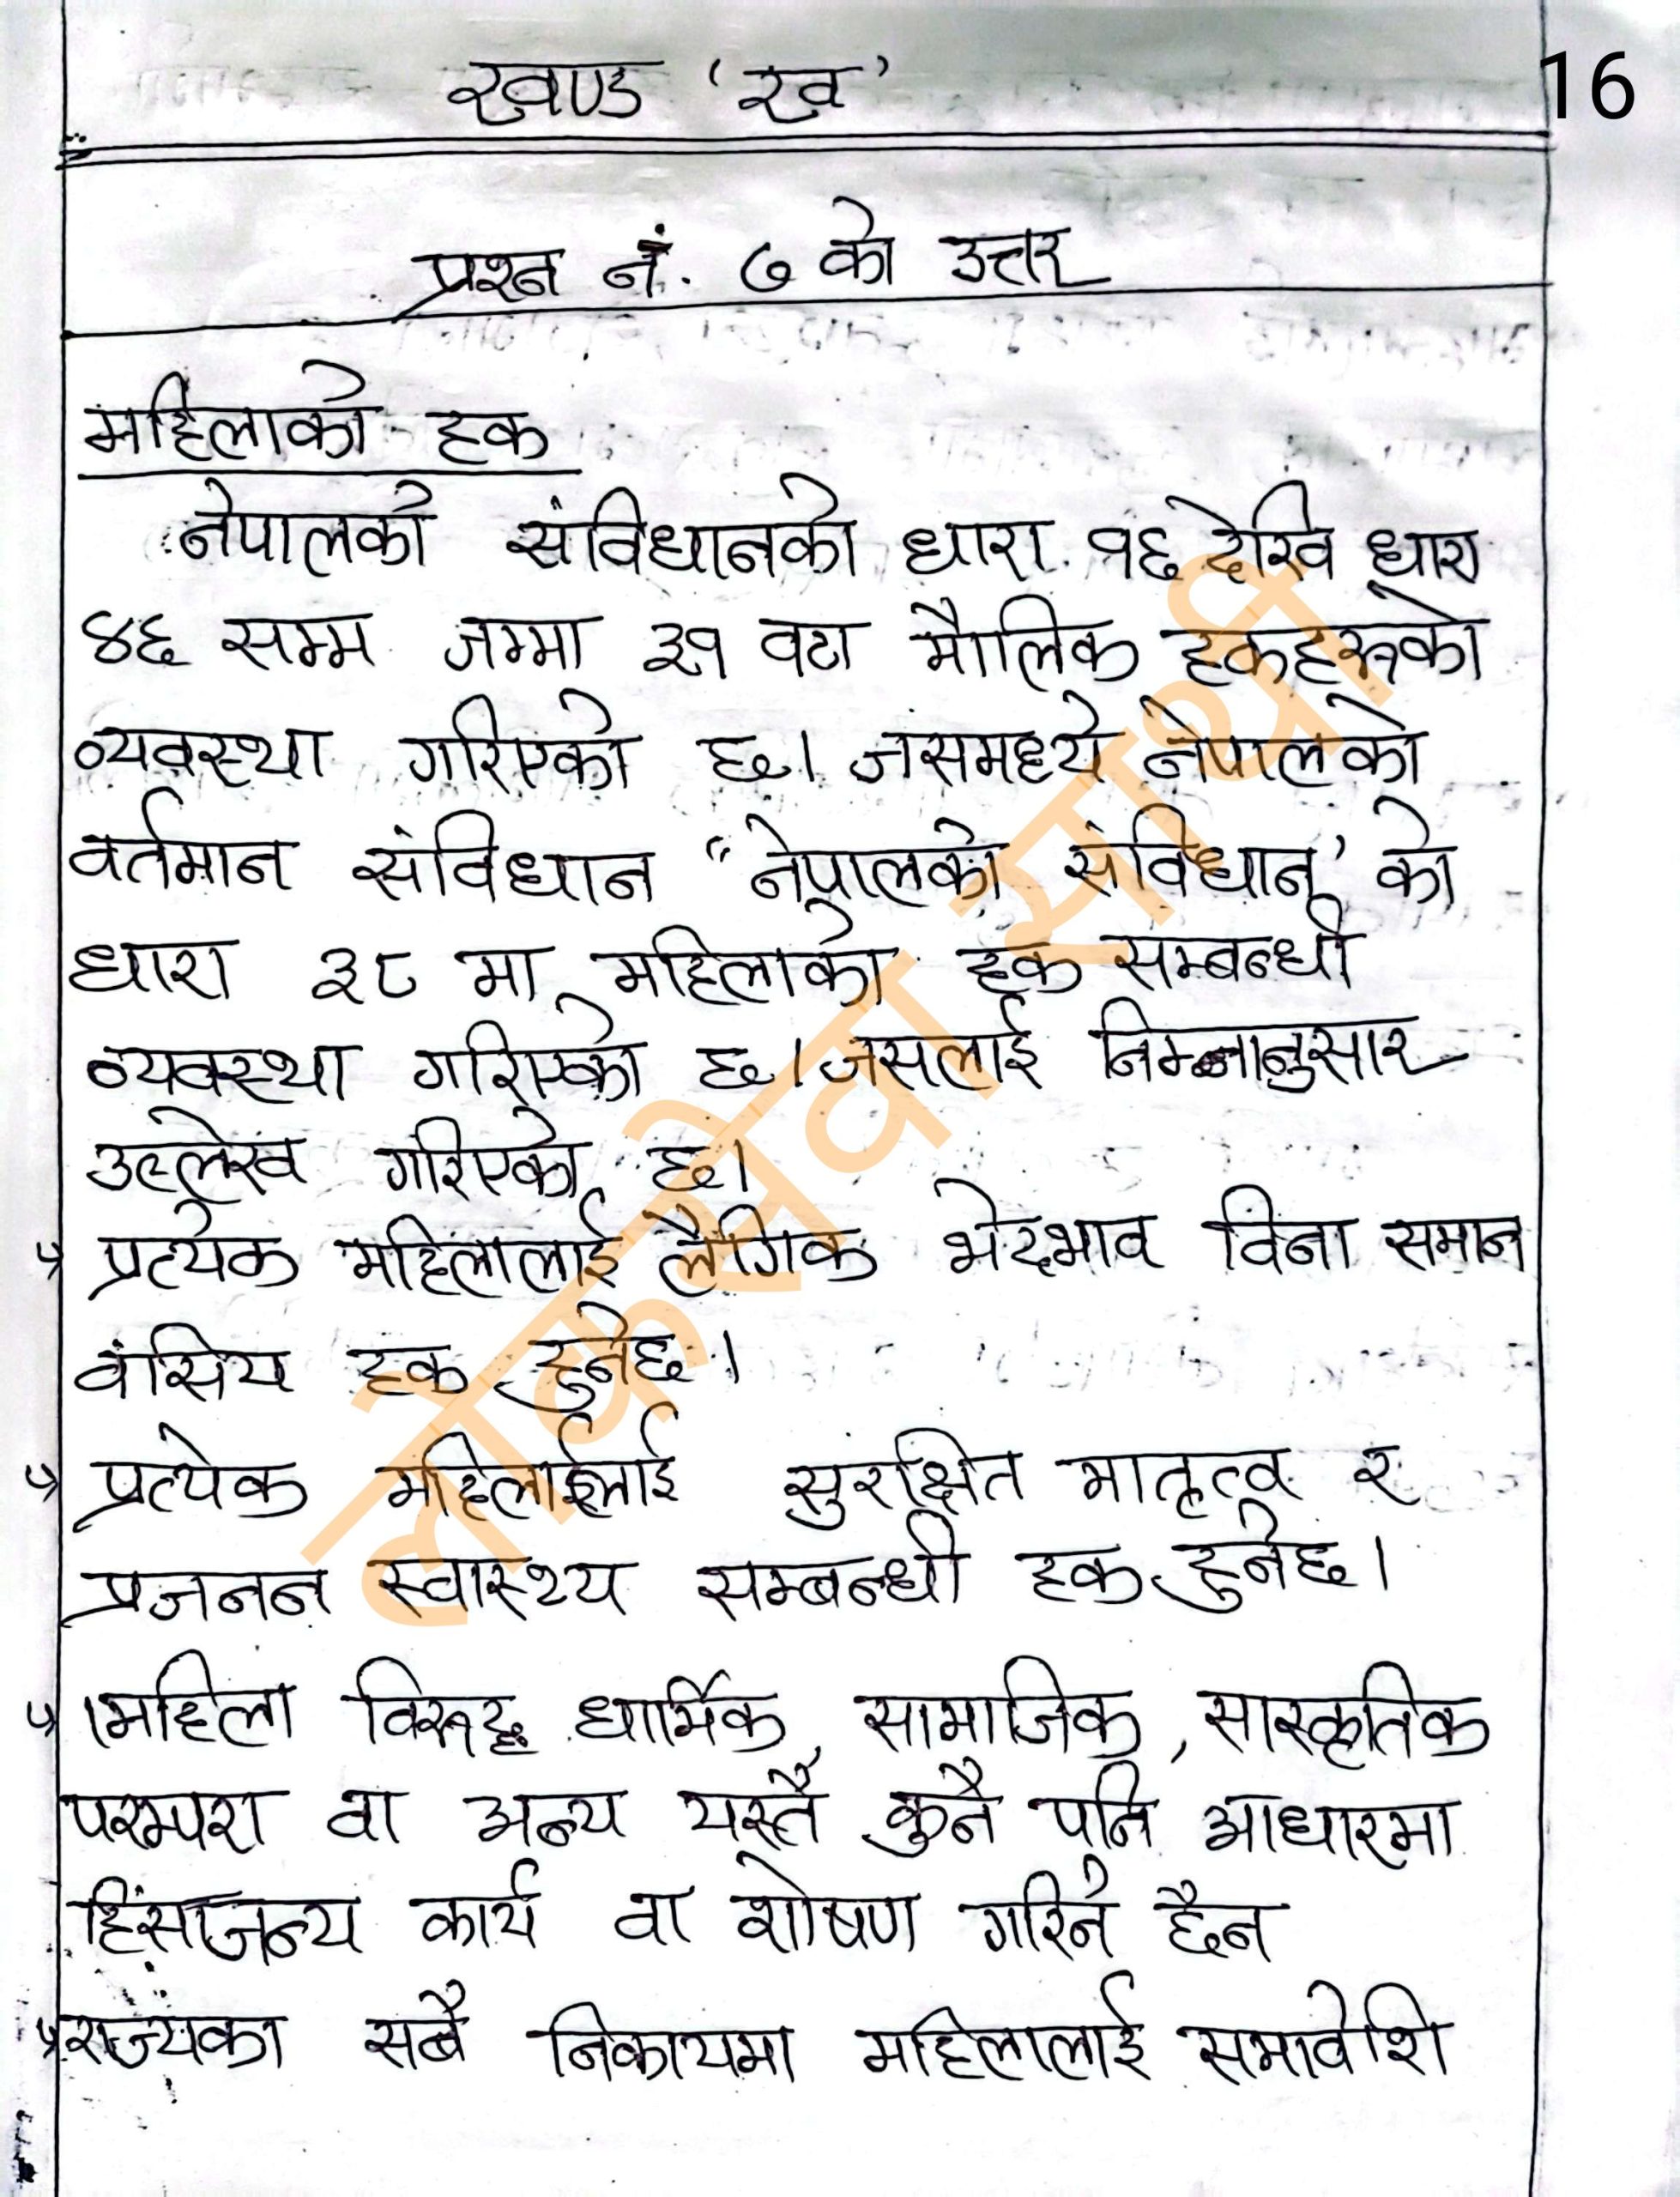 16
खण्ड 'ख'
प्रश्न नं. ७ को उत्तर
महिलाको हक
नेपालको संविधानको धारा १६ देखि धारा
४६ सम्म जम्मा ३१ वटा मौलिक हकहरुको
व्यवस्था गरिएको छ। जसमध्ये नेपालको
वर्तमान संविधान "नेपालको संविधान' को
धारा ३८ मा महिलाको हक सम्बन्धी
व्यवस्था गरिएको छ। जसलाई निम्नानुसार
उल्लेख गरिएको छ।
प्रत्येक महिलालाई लैंगिक भेदभाव विना समान
वंसिय हक हुनेछ।
प्रत्येक महिलाईलाई सुरक्षित मातृत्व र
प्रजनन स्वास्थ्य सम्बन्धी हक हुनेछ।
महिला विरुद्ध धार्मिक, सामाजिक, सास्कृतिक
परम्परा वा अन्य यस्तै कुनै पनि आधारमा
हिंसाजन्य कार्य वा शोषण गरिने छैन
राज्यका सबै निकायमा महिलालाई समावेशि
लोकसेवा साथी